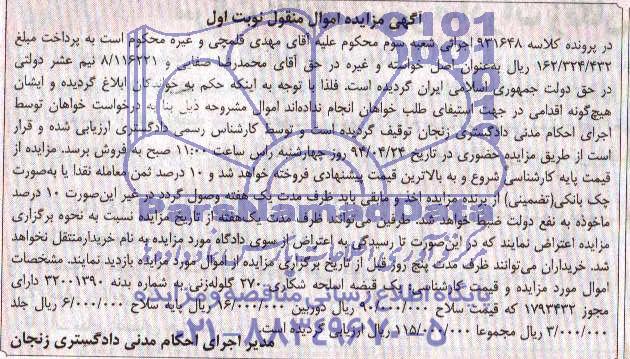 آگهی مزایده اموال منقول نوبت اول
در پرونده کلاسه ۹۳۱۶۴۸ اجرائی شعبه سوم محکوم علیه آقای مهدی قلمچی و غیره محکوم است به پرداخت مبلغ
۱۶۲/۳۲۴/۴۳۲ ریال به‌عنوان اصل خواسته و غیره در حق آقای محمدرضا صفایی و ۸/۱۱۶۲۲۱ نیم عشر دولتی
در حق دولت جمهوری اسلامی ایران گردیده است. فلذا با توجه به اینکه حکم به خواندگان ابلاغ گردیده و ایشان
هیچ‌گونه اقدامی در جهت استیفای طلب خواهان انجام نداده‌اند اموال مشروحه ذیل بنا به درخواست خواهان توسط
اجرای احکام مدنی دادگستری زنجان توقیف گردیده است و توسط کارشناس رسمی دادگستری ارزیابی شده و قرار
است از طریق مزایده حضوری در تاریخ ۹۴/۰۴/۲۴ روز چهارشنبه راس ساعت ۱۱:۰۰ صبح به فروش برسد. مزایده از
قیمت پایه کارشناسی شروع و به بالاترین قیمت پیشنهادی فروخته خواهد شد و ۱۰ درصد ثمن معامله نقدا یا به‌صورت
چک بانکی(تضمینی) از برنده مزایده اخذ و مابقی باید ظرف مدت یک هفته وصول گردد در غیر این‌صورت ۱۰ درصد
ماخوذه به نفع دولت ضبط خواهد شد. طرفین می‌توانند ظرف مدت یک‌هفته از تاریخ مزایده نسبت به نحوه برگزاری
مزایده اعتراض نمایند که در این‌صورت تا رسیدگی به اعتراض از سوی دادگاه مورد مزایده به نام خریدار منتقل نخواهد
شد. خریداران می‌توانند ظرف مدت پنج روز قبل از تاریخ برگزاری مزایده از اموال مورد مزایده بازدید نمایند. مشخصات
اموال مورد مزایده و قیمت کارشناسی: یک قبضه اسلحه شکاری ۲۷۰ گلوله‌زنی به شماره بدنه ۳۲۰۰۱۳۹۰ دارای
مجوز ۱۷۹۳۴۳۲ که قیمت سلاح ۹۰/۰۰۰/۰۰۰ ریال دوربین ۱۶/۰۰۰/۰۰۰ ریال پایه سلاح ۶/۰۰۰/۰۰۰ ریال جلد
۳/۰۰۰/۰۰۰ ریال مجموعا ۱۱۵/۰۰۰/۰۰۰ ریال ارزیابی گردیده است.
مدیر اجرای احکام مدنی دادگستری زنجان
پایگاه اطلاع رسانی مناقصه و مزایده